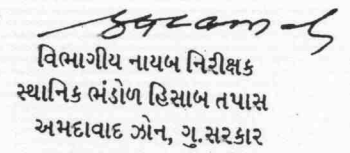 વિભાગીય નાયબ નિરીક્ષક
સ્થાનિક ભંડોળ હિસાબ તપાસ
અમદાવાદ ઝોન, ગુ.સરકાર